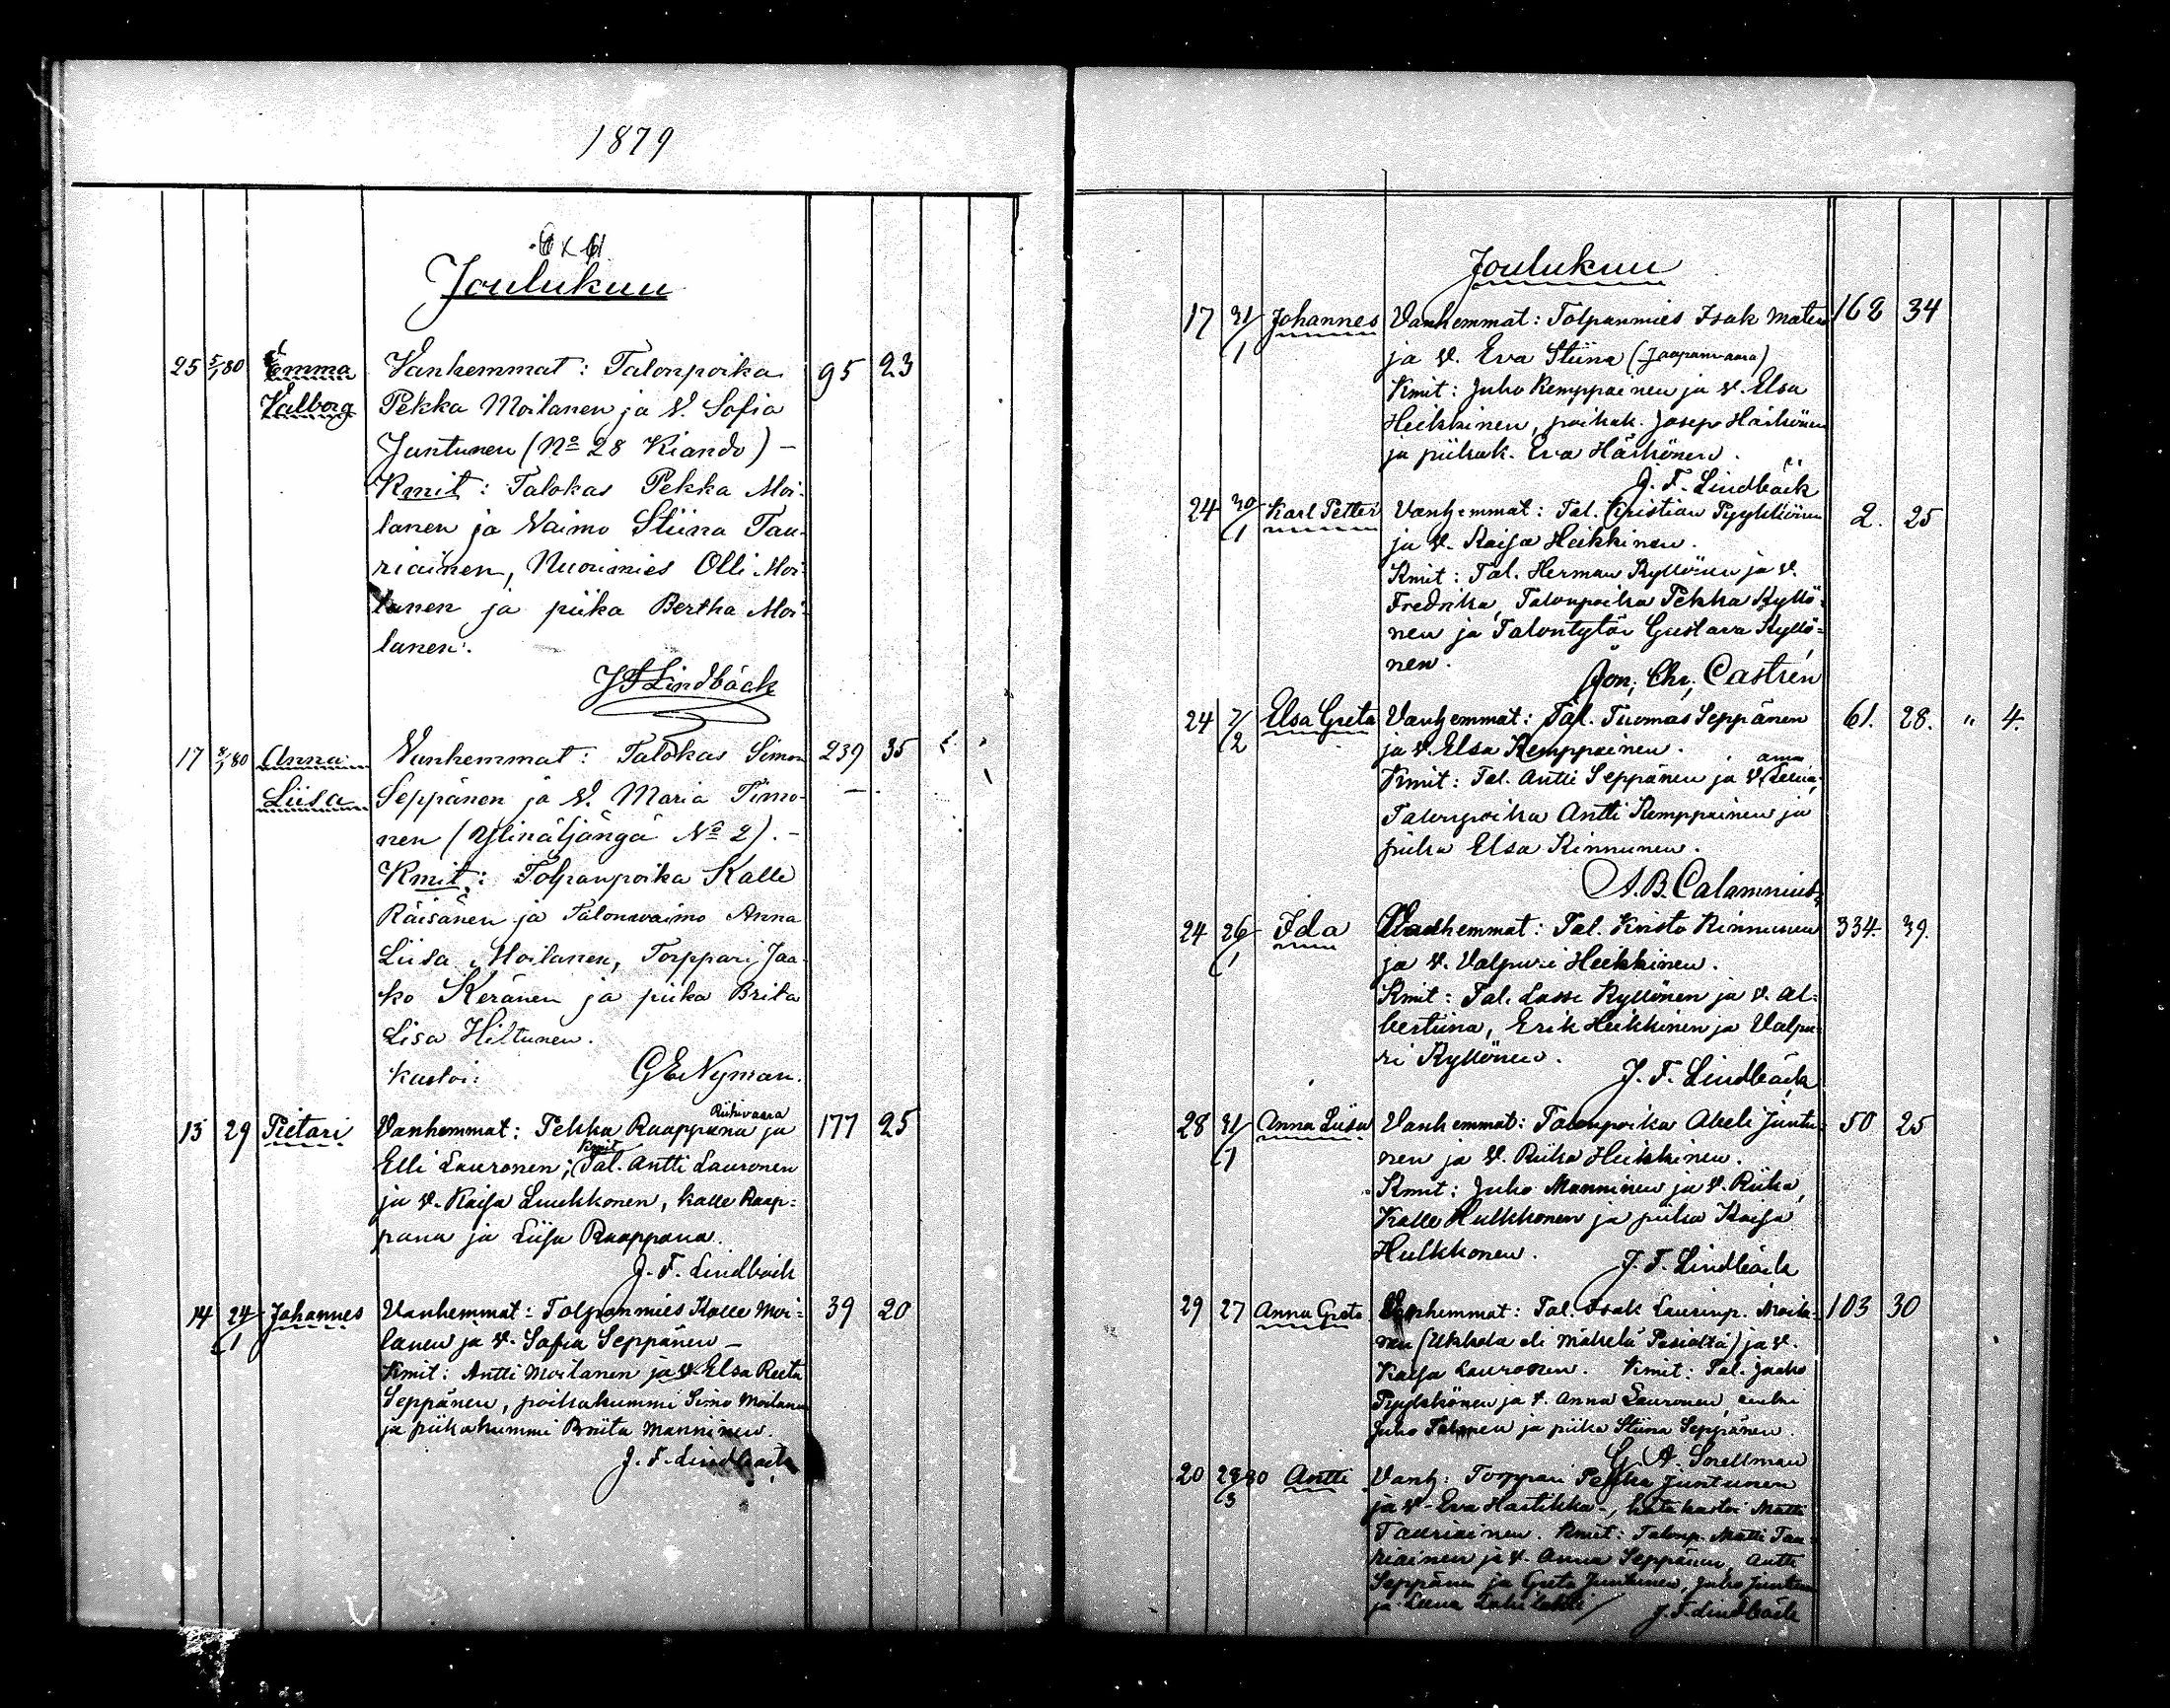 1879
Joulukuu
25 5/1 80 Emma Vanhemmat: Talonpoika 95 23
Valborg Pekka Moilanen ja V. Sofia
Juntunen (No 28 Kiando) –
Kmit: Talokas Pekka Moi-
lanen ja Vaimo Stiina Tau-
riainen, Nuorimies Olli Moi-
lanen ja piika Bertha Moi-
lanen.
J F Lindbäck
17 8/1 80 Anna Vanhemmat: Talokas Simon 239 35
Liisa Seppänen ja V. Maria Timo-
nen (Ylinäljängä No 2). –
Kmit: Tolpanpoika Kalle
Räisänen ja Talonvaimo Anna
Liisa Moilanen, Torppari Jaa-
ko Keränen ja piika Brita
Lisa Hiltunen.
Kastoi: G E Nyman.
Riihivaara
15 29 Pietari Vanhemmat: Pekka Raappana ja 177 25
Kmit
Elli Lauronen; Tal. Antti Lauronen
ja v. Kaisa Luukkonen, Kalle Raap-
pana ja Liisa Raappana.
J. F. Lindbäck
14 24/1 Johannes Vanhemmat: Tolpanmies Kalle Moi- 39 20
lanen ja v. Sofia Seppänen –
Kmit: Antti Moilanen ja v. Elsa Reeta
Seppänen, poikakummi Simo Moilanen
ja piikakummi Briita Manninen.
J. F. Lindbäck
Joulukuu
17 31/1 Johannes Vanhemmat: Tolpanmies Isak Matero 162 34
ja v. Eva Stiina (Jaapanvaara)
Kmit: Juho Kemppainen ja v. Elsa
Heikkinen, poikak. Josep Härkönen
ja piikak. Eva Härkönen.
J. F. Lindbäck
24 30/1 Karl Petter Vanhemmat: Tal. Kristian Pyykkönen 2. 25
ja v. Kaisa Heikkinen.
Kmit: Tal. Herman Kyllönen ja v.
Fredrika, Talonpoika Pekka Kyllö-
nen ja Talontytär Gustava Kyllö-
nen.
Jon. Chr. Castrén
24 7/2 Elsa Greta Vanhemmat: Tal. Tuomas Seppänen 61. 28. " 4.
ja v. Elsa Kemppainen.
anna
Kmit: Tal. Antti Seppänen ja v. Leena,
Talonpoika Antti Kemppainen ja
piika Elsa Kinnunen.
A. B. Calamnius
24 26/1 Ida Vanhemmat: Tal. Kristo Kinnunen 334. 39.
ja v. Valpuri Heikkinen.
Kmit: Tal. Lasse Kyllönen ja v. Al-
bertiina, Erik Heikkinen ja Valpu-
ri Kyllönen.
J. F. Lindbäck
28 31/1 Anna Liisa Vanhemmat: Talonpoika Abeli Juntu- 50 25
nen ja v. Riika Heikkinen.
Kmit: Juho Manninen ja v. Riika,
Kalle Hulkkonen ja piika Kaisa
Hulkkonen.
J. F. Lindbäck
29 27 Anna Greta Vanhemmat: Tal. Isak Laurinp. Moila- 103 30
nen (Ukkola eli Mäkelä Pesiöltä) ja v.
Kaisa Lauronen. Kmit: Tal. Jaako
Pyykkönen ja v. Anna Lauronen, renki
Juho ja piika Stiina Seppänen.
G. A. Snellman
20 29/3 80 Antti Vanh: Torppari Pekka Juntunen
ja v. Eva Hartikka, hätä kastoi Matti
Tauriainen. Kmit: Talonp. Matti Tau-
riainen ja v. Anna Seppänen, Antti
Seppänen ja Greta Juntunen, Juho Juntunen
ja Leena
J. F. Lindbäck